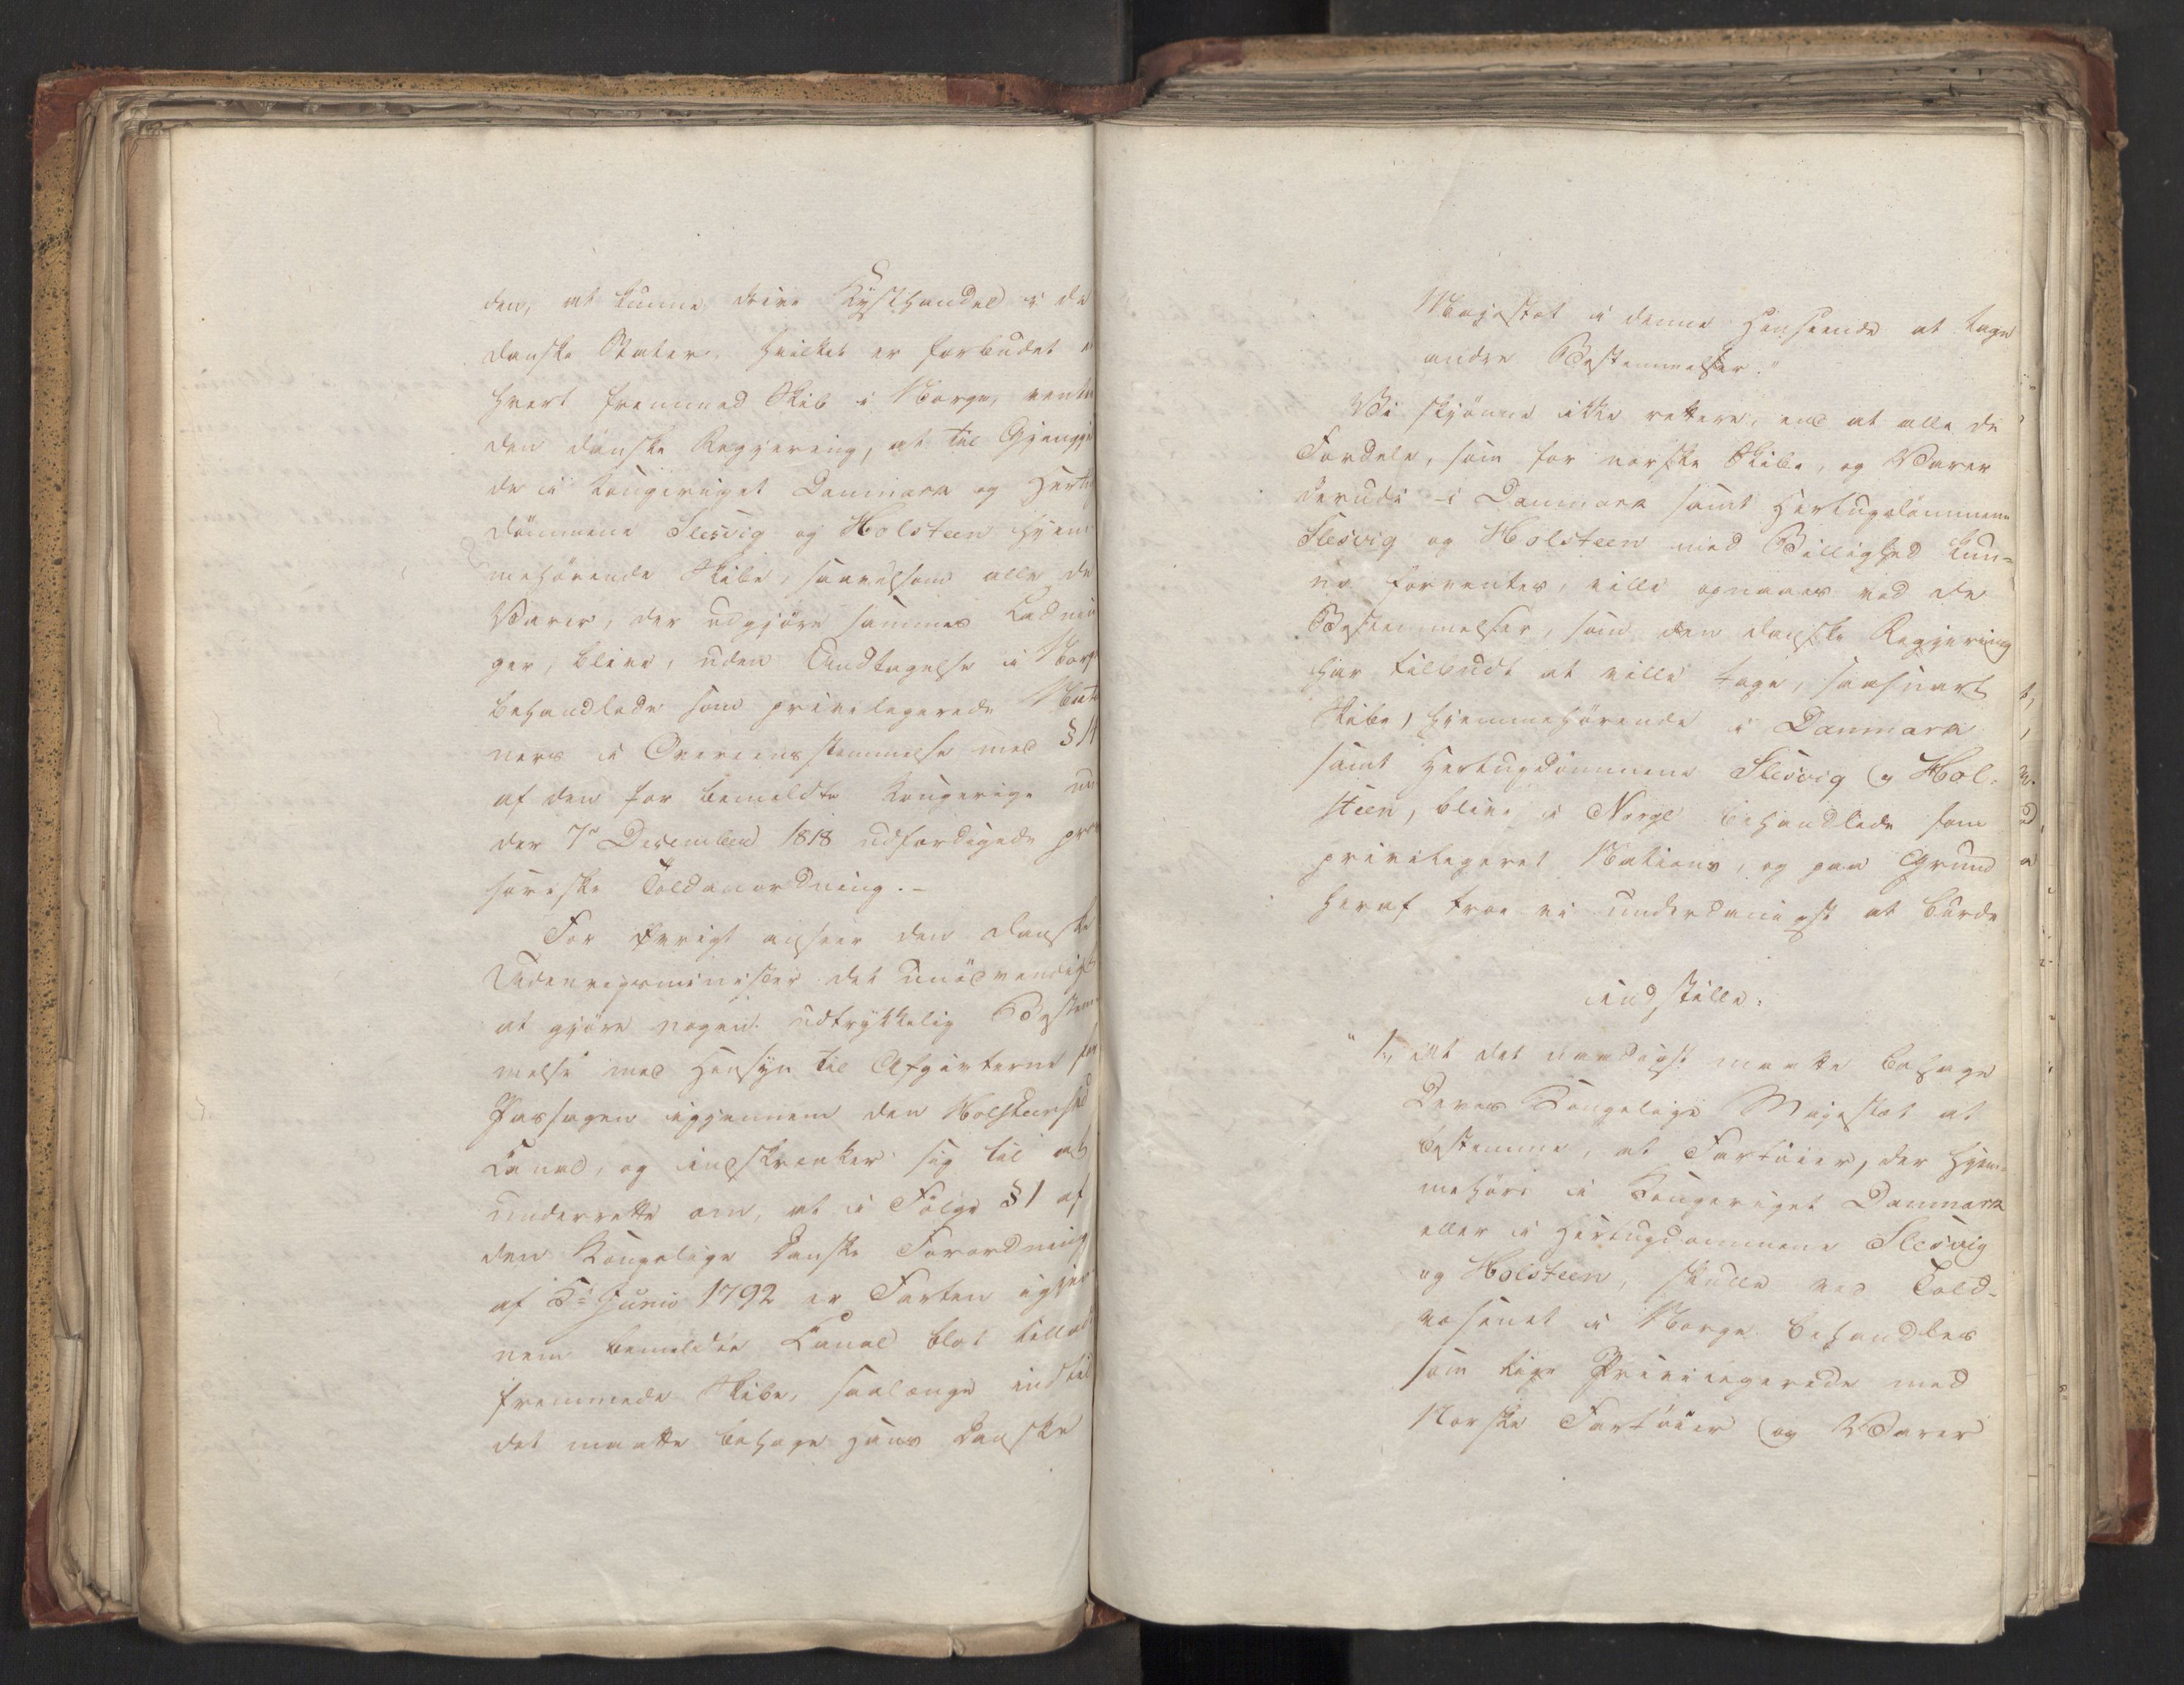 den, at kunne drive Kysthandel i de
danske Stater, hvilket er forbudet
hvert fremmed Skib i Norge, vente
den danske Regjering, at til Gjengje
de i Kongeriget Danmark og Hertu
dömmene Slesvig og Holsteen hjem
mehörende Skibe, saavelsom alle de
Varer, der udgjöre sammes Ladnin
ger, blive, uden Undtagelse i Norge
behandlede som privilegerede Natio
ners i Overeensstemmelse med § 14
af den for bemeldte Kongerige un
der 7de December 1818 udfærdigede pro
soriske Toldanordning. -
For övrigt anseer den danske
Udenrigsminister det unödvendigt
at gjöre nogen udtrykkelig Bestem
melse med Hensyn til Afgivterne for
Passagen igjennem den Holsteenske
Canal, og indskrænker sig til at
underrette om, at i Fölge § 1 af
den Kongelige Danske Forordning
af Junii 1792 er Farten igjen
nem bemeldte Canal blot tilladt
fremmede Skibe, saalænge indtil
det maatte behage Hans Danske
Majestæt i denne Henseende at tage
andre Bestemmelser."
Vi skjönne ikke rettere, end at alle de
Fordele, som for norske Skibe, og Varer
derudi i Danmark samt Hertugdömmene
Slesvig og Holsteen med Billighed kun-
ne forventes, ville opnaaes ved de
Bestemmelser, som den danske Regjering
har tilbudt at ville tage, saasnart
Skibe, hjemmehörende i Danmark
samt Hertugdömmene Slesvig og Hol-
steen, blive i Norge behandlede som
privilegeret Nations, og paa Grund
heraf troe vi underdanigst at burde
indstille:
"1, at det naadigst maatte behage
Deres Kongelige Majestæt at
bestemme, at Fartöier, der hjem-
mehöre i Kongeriget Danmark
eller i Hertugdömmene Slesvig
og Holsteen, skulle ved Told-
væsenet i Norge behandles
som lige Privilegerede med
Norske Fartöier (og Varer